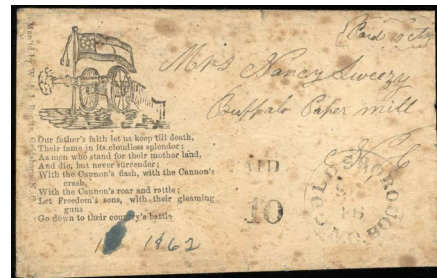 Paid 10
Mrs Nancy Sweezy
Buffalo Paper mill
N C
Our father's faith let us keep till death,
Their fame in its cloudless splendor;
As men who stand for their mother land,
And die, but never surrender;
With the Cannon's flash, with the Cannon's
crash,
With the Cannon's roar and rattle;
Let Freedom's sons, with their gleaming
guns
Go down to their country's battle
PAID
10
GOLDSBOROUGH
N.C.
1862